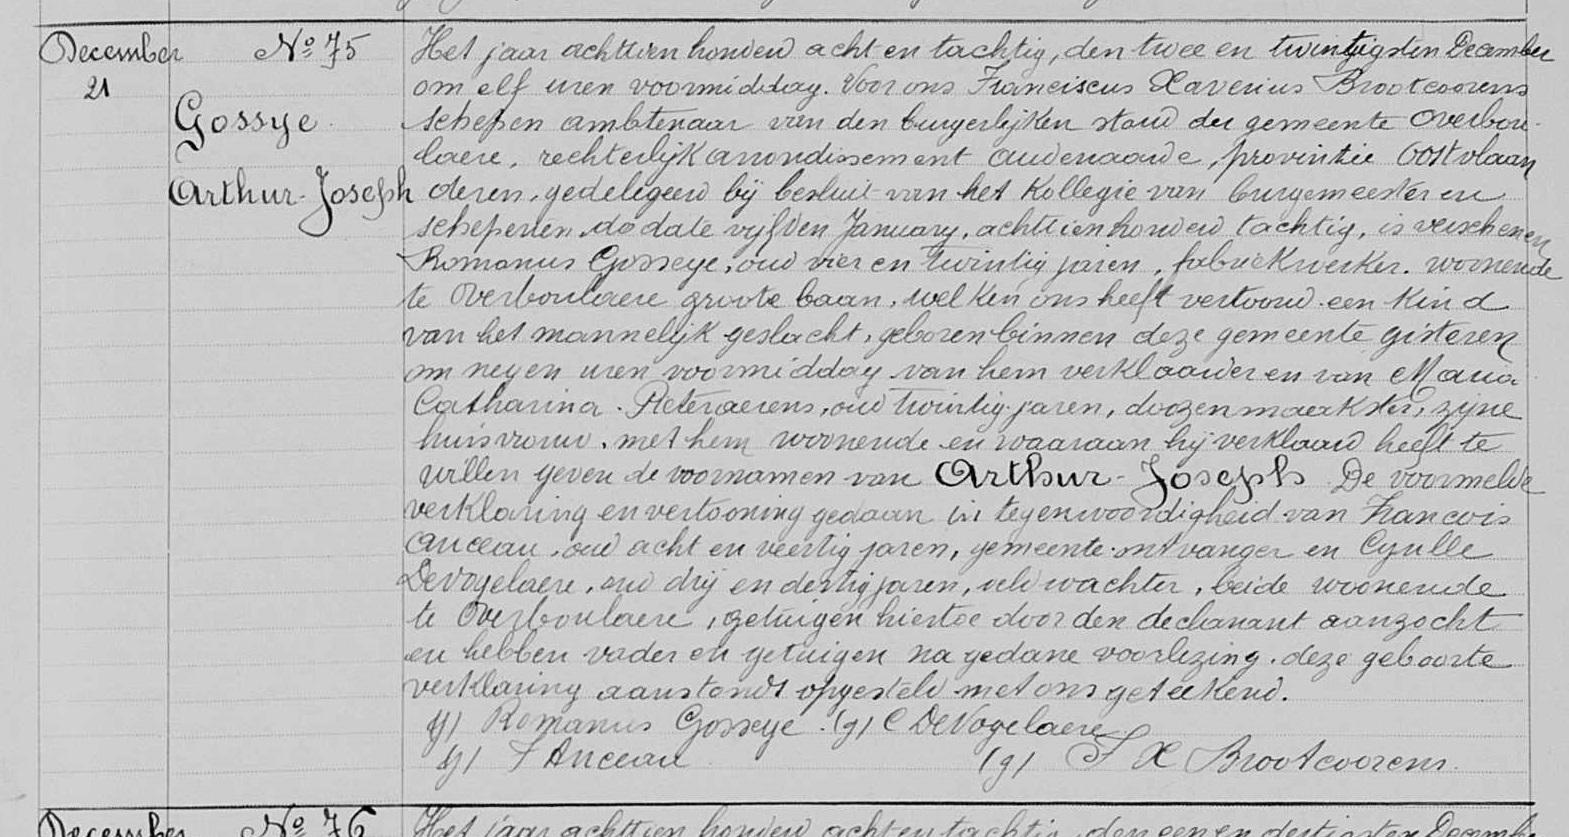 December
21
No 75
Gossye
Arthur-Joseph
Het jaar achttien honderd acht en tachtig, den twee en twintigsten December
om elf uren voormiddag. Voor ons Franciscus Xaverius Brootcoorens
schepen ambtenaar van den burgerlijken stand der gemeente Overbou-
laere, rechterlijk arrondissement Audenaarde, provintie Oostvlaan
deren, gedeligeerd bij besluit van het Kollegie van burgemeester en
schepenen do date vijfden January, achttien honderd tachtig, is verschenen
Romanus Gosseye, oud vier en twintig jaren, fabriekwerker. woonende
te Overboulaere groote baan, welken ons heeft vertoond een kind
van het mannelijk geslacht, geboren binnen deze gemeente gisteren
om negen uren voormiddag van hem verklaarder en van Maria
Catharina Pieteraerens, oud twintig jaren, doozenmaekster, zijne
huisvrouw, met hem woonende en waaraan hij verklaard heeft te
willen geven de voornamen van Arthur-Joseph De voormelde
verklaring en vertooning gedaan in tegenwoordigheid van Francois
Anceau, oud acht en veertig jaren, gemeente-ontvanger en Cyrille
DeVogelaere, oud drij en dertig jaren, veldwachter, beide woonende
te Overboulaere, getuigen hiertoe door den dechanant aanzocht
en hebben vader en getuigen na gedane voorlezing deze geboorte
verklaring aanstonds opgesteld met ons geteekend.
(g) Romanus Gosseye (g) C DeVogelaere
(g) F Anceau (g) F X Brootcoorens
December No 76 Het jaar achttien honderd acht en tachtig, den een en dertigsten Decembe